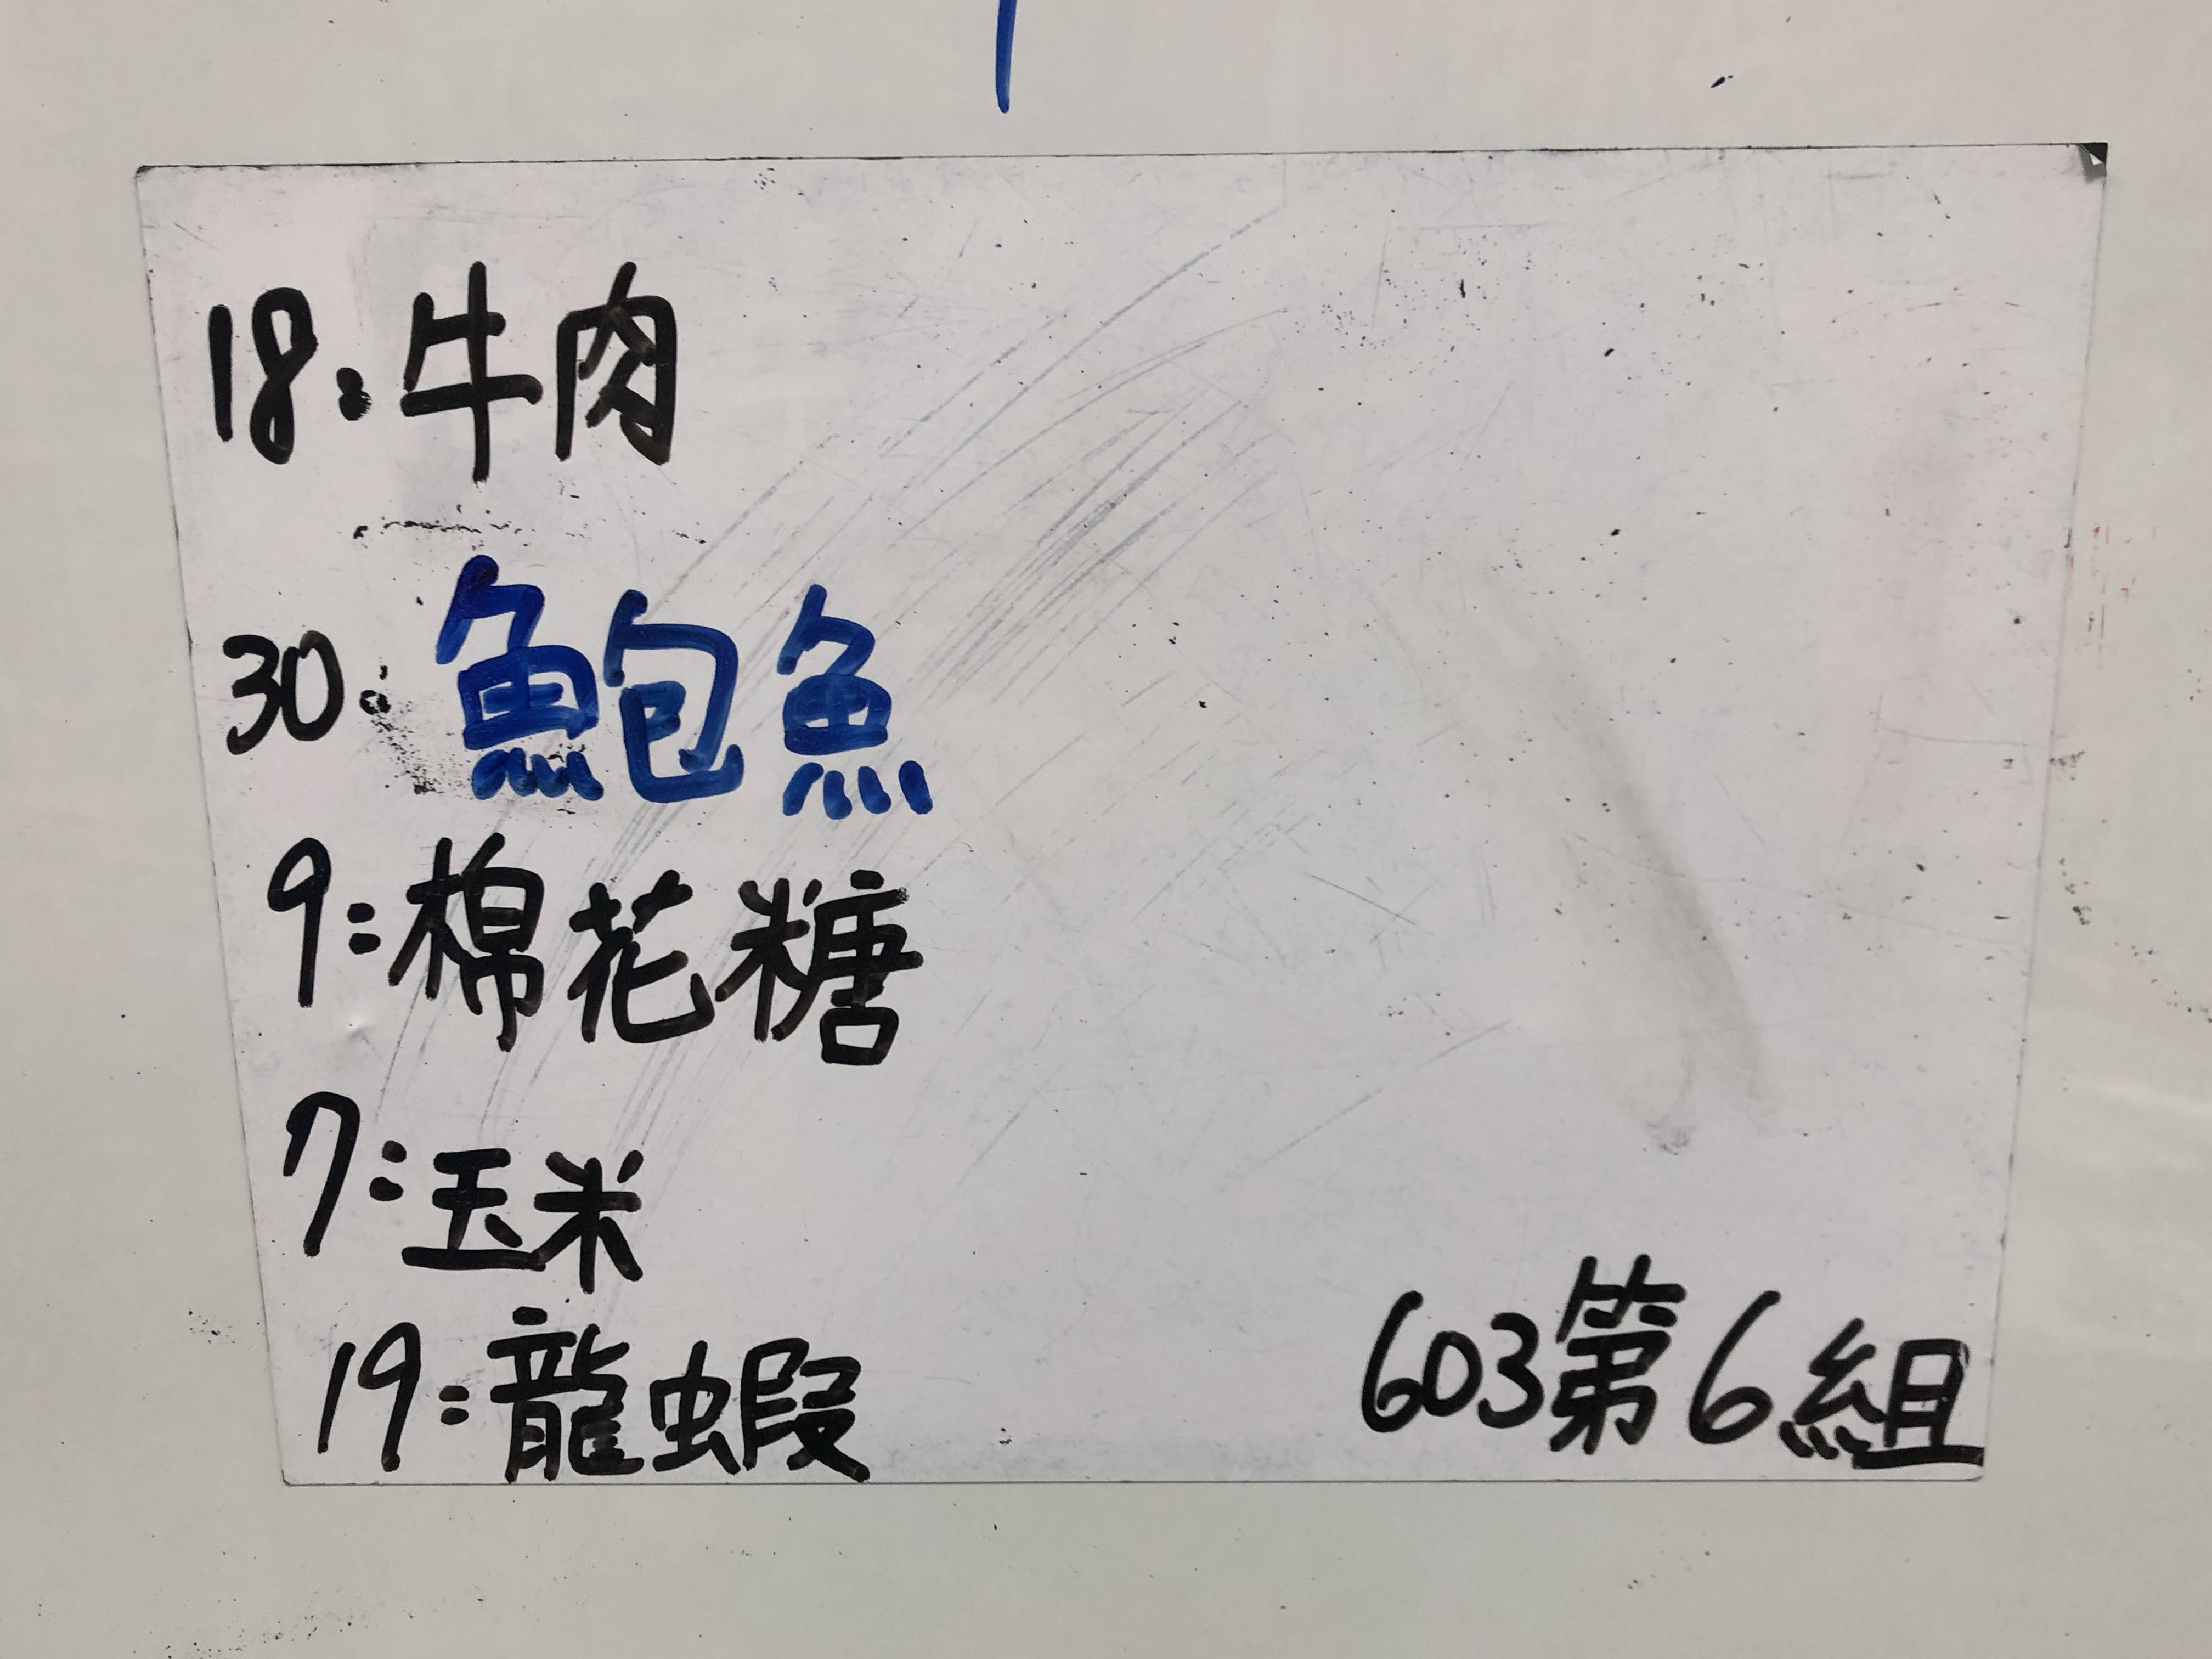 18:牛肉
30:鮑魚
9:棉花糖
7:玉米
19:龍蝦
603第6組